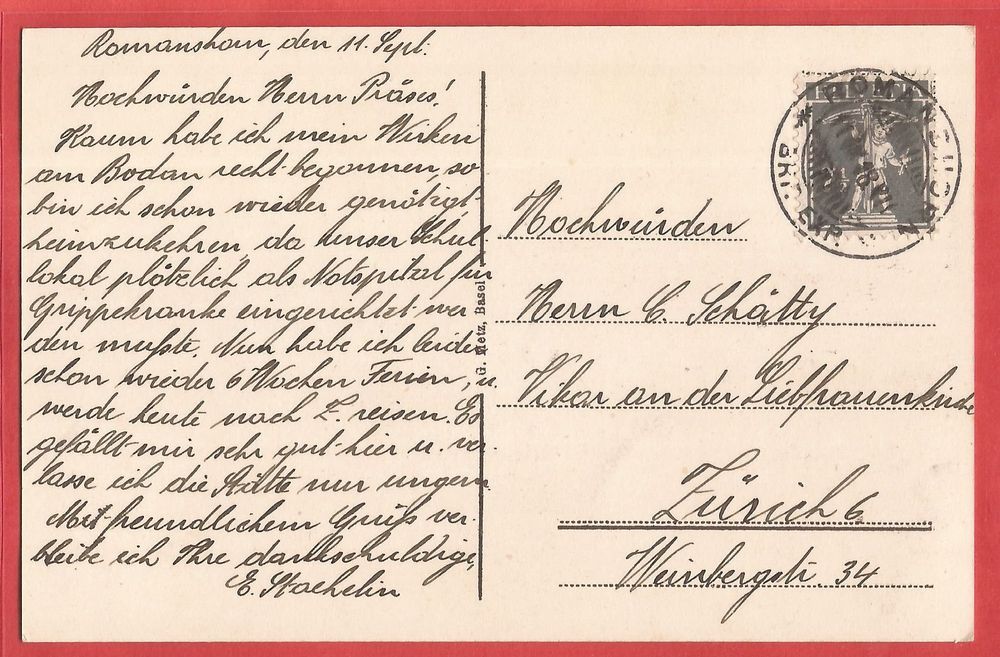 Romanshorn, den 11. Sept.
Hochwürden Herrn Präses!
Kaum habe ich mein Wirken
am Bodan recht begonnen, so
bin ich schon wieder genötigt
heimzukehren, da unser Schul-
lokal plötzlich als Notspital für
Grippekranke eingerichtzt wer-
den mußte. Nun habe ich leider
schon wieder 6 Wochen Ferien, u.
werde heute nach Z. reisen. Es
gefällt mir sehr gut hier u. ver-
lasse ich die Stätte nur ungern.
Mit freundlichem Gruß ver-
bleibe ich Ihre dankschuldige,
E. Staehelin
G. Metz, Basel
* ROMANSHORN
BRF. EXP.
Hochwürden
Herrn C. Schätty
Vikar an der Liebfrauenkirche
Zürich 6
Weinbergstr. 34